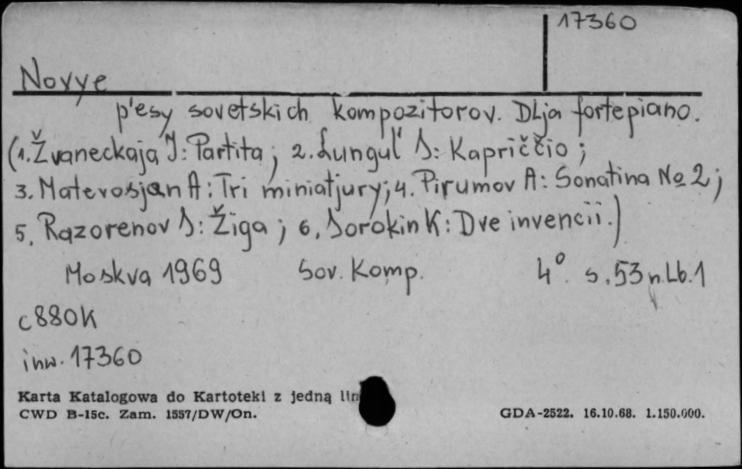 17360
Novye
p'esy sovetskich kompozitorov. Dlja fortepiano.
(1. Žvaneckaja I: Partita; 2. Lungul' S: Kapriččio;
3. Matevosjan A: Tri miniatjury; 4. Pirumov A: Sonatina No 2;
5. Razorenov S: Žiga; 6. Sorokin K: Dve invencii.)
Moskva 1969 Sov. Komp. 4° s. 53 n.Lb.1
c880K
inw. 17360
Karta Katalogowa do Kartoteki z jedną
CWD B-15c. Zam. 1557/DW/On. GDA-2522. 16.10.68. 1.150.000.